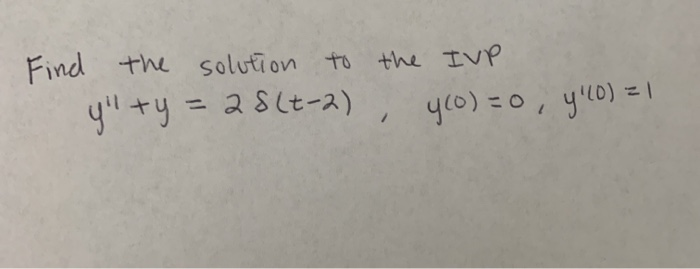 Find the solution to the IVP
y'' + y = 2 δ(t-2) , y(0) = 0 , y'(0) = 1